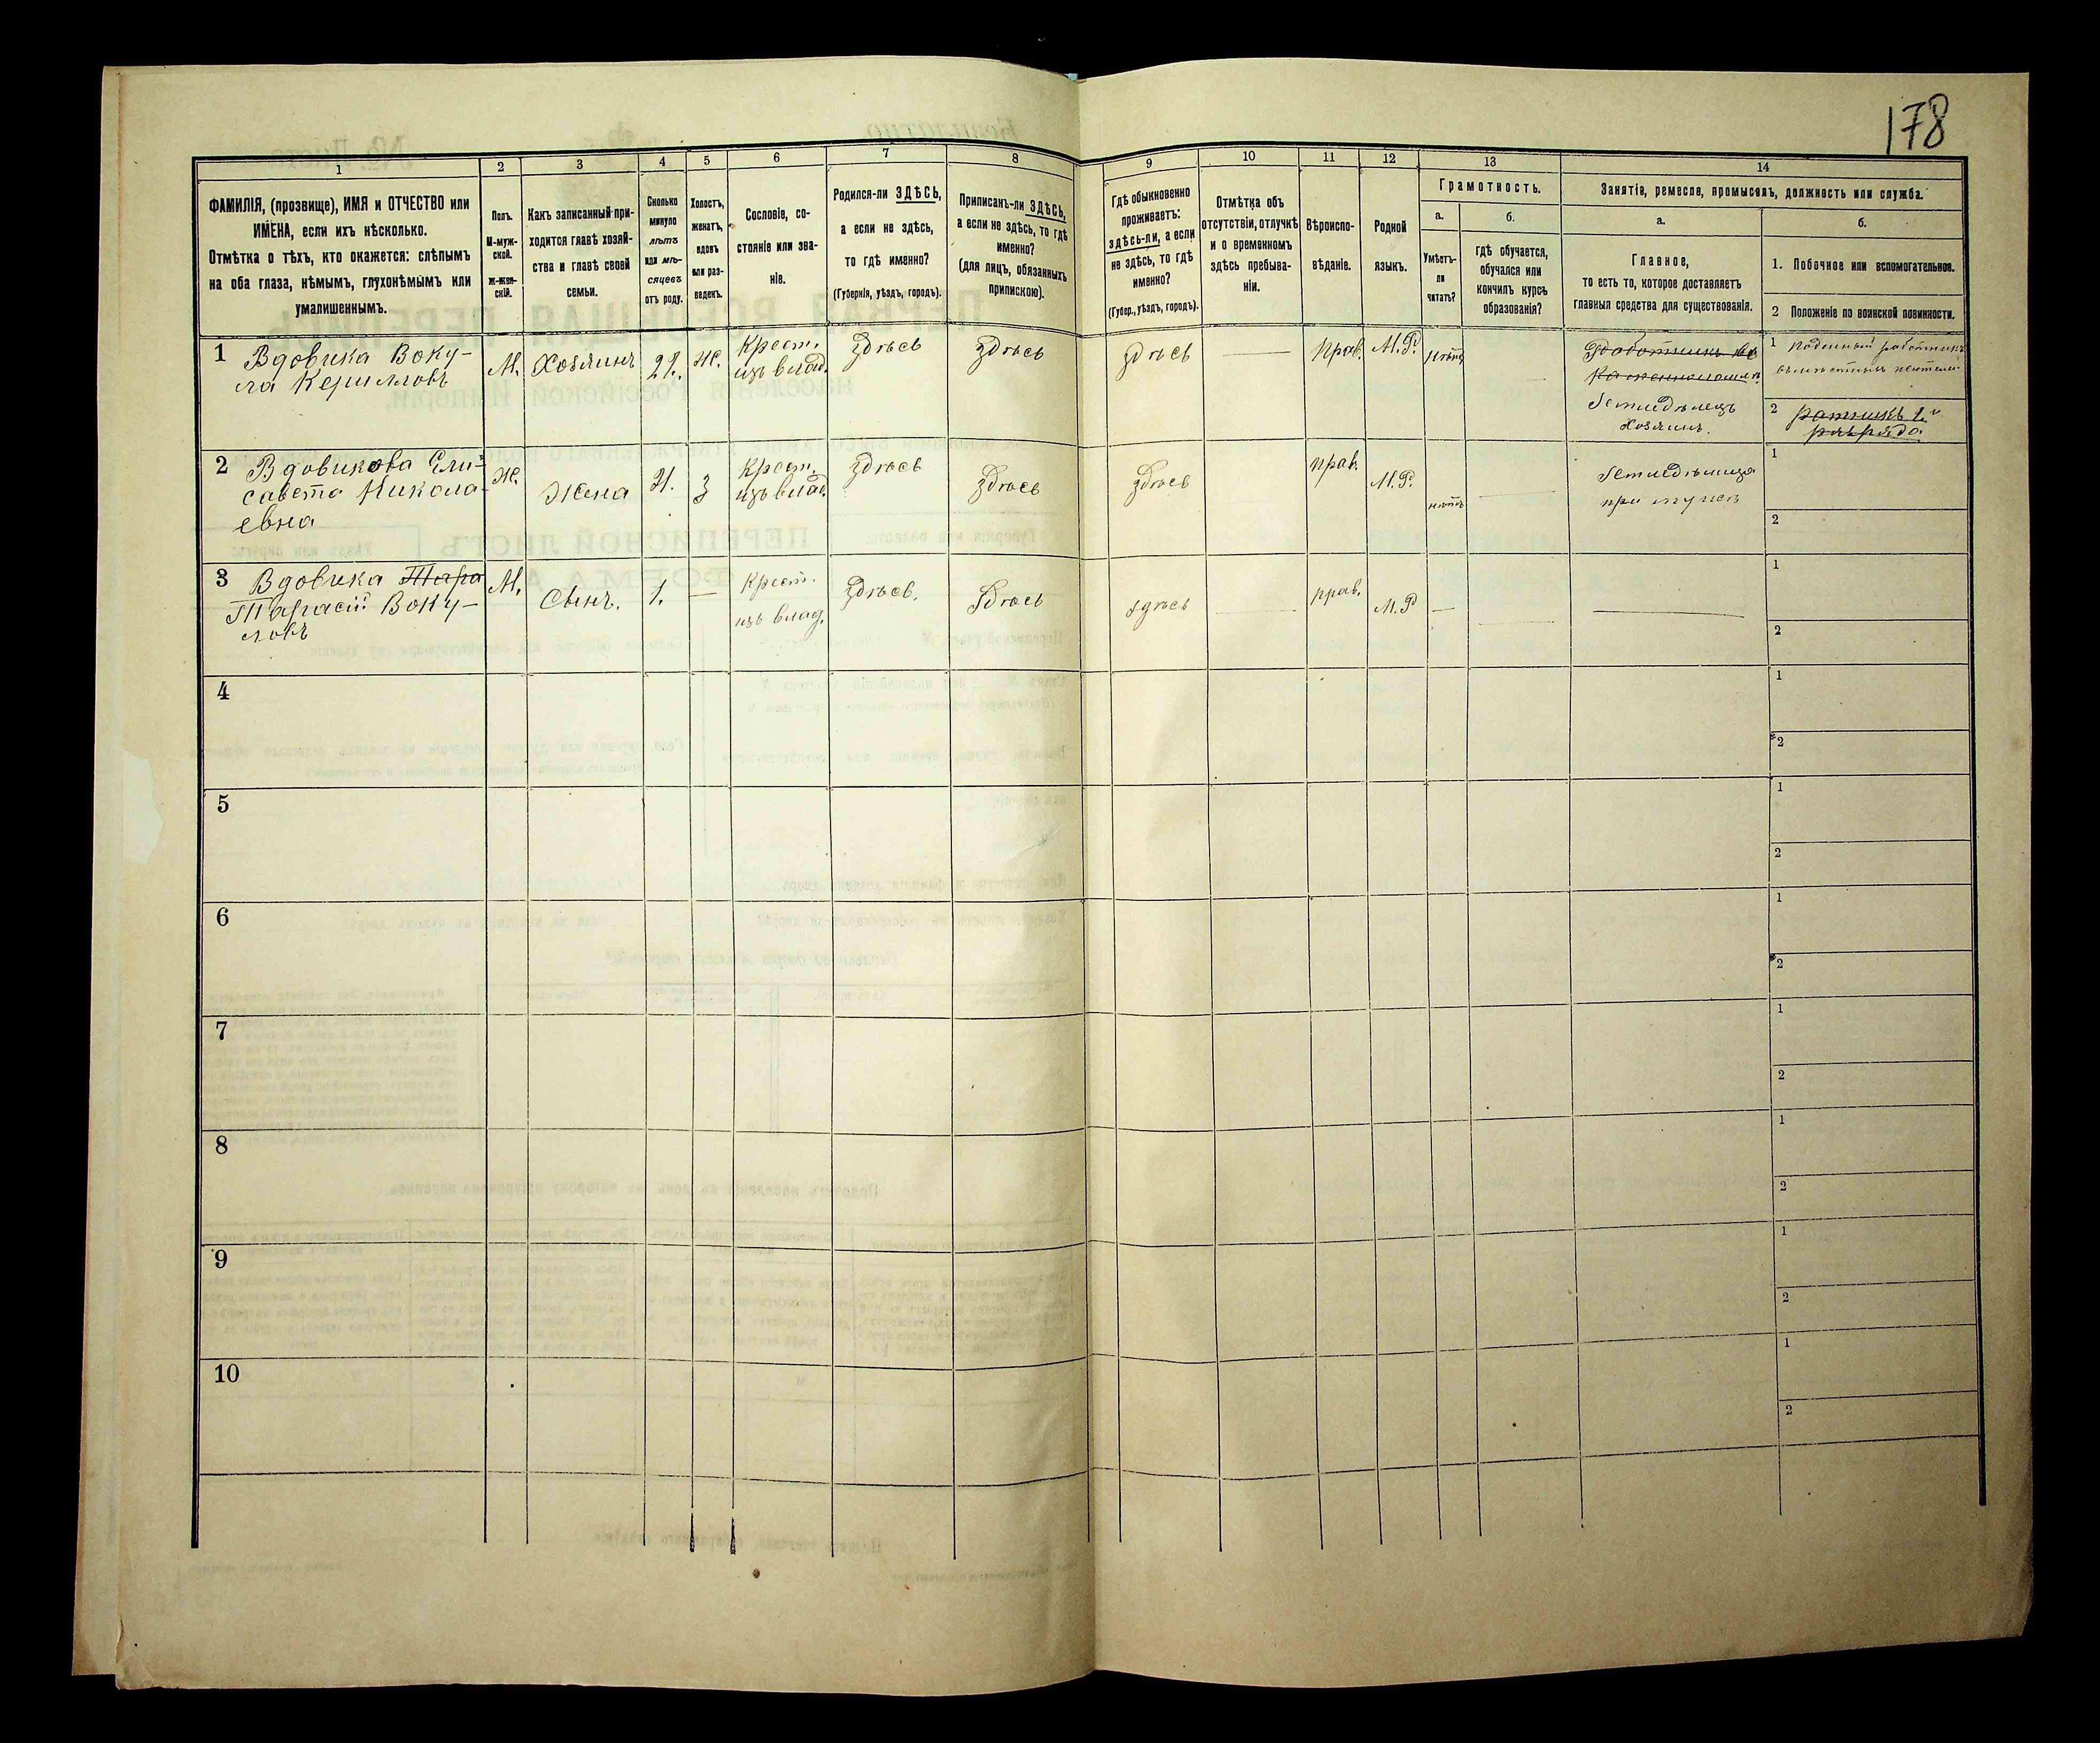 178
1
2
3
4
5
6
7
8
9
10
11
12
13
14
ФАМИЛІЯ, (прозвище), ИМЯ и ОТЧЕСТВО или
ИМЕНА, если ихъ нѣсколько.
Отмѣтка о тѣхъ, кто окажется: слѣпымъ
на оба глаза, нѣмымъ, глухонѣмымъ или
умалишеннымъ.
Полъ.
М-муж-
ской.
Ж-жен-
скій.
Какъ записанный при-
ходится главѣ хозяй-
ства и главѣ своей
семьи.
Сколько
минуло
лѣтъ
или мѣ-
сяцевъ
отъ роду.
Холостъ,
женатъ,
вдовъ
или раз-
веденъ.
Сословіе, со-
стояніе или зва-
ніе.
Родился-ли ЗДѢСЬ,
а если не здѣсь,
то гдѣ именно?
(Губернія, уѣздъ, городъ).
Приписанъ-ли ЗДѢСЬ,
а если не здѣсь, то гдѣ
именно?
(для лицъ, обязанныхъ
припискою).
Гдѣ обыкновенно
проживаетъ:
здѣсь-ли, а если
не здѣсь, то гдѣ
именно?
(Губер., уѣздъ, городъ).
Отмѣтка объ
отсутствіи, отлучкѣ
и о временномъ
здѣсь пребыва-
ніи.
Вѣроиспо-
вѣданіе.
Родной
языкъ.
Грамотность.
а.
Умѣетъ-
ли
читать?
б.
Гдѣ обучается,
обучался или
кончилъ курсъ
образованія?
Занятіе, ремесло, промыселъ, должность или служба.
а.
Главное,
то есть то, которое доставляетъ
главныя средства для существованія.
б.
1. Побочное или вспомогательное.
2 Положеніе по воинской повинности.
1 Вдовика Воку-
ла Кириловъ
М.
Хозяинъ
21.
Ж.
Крест.
изъ влад.
Здѣсь
Здѣсь
Здѣсь
Прав.
М.Р.
нѣтъ
Земледѣлецъ
хозяинъ.
1 Поденный работникъ
2 ратникъ 1.
разряда
2 Вдовикова Ели-
савета Никола-
евна
Ж.
Жена
21.
З
Крест.
изъ влад.
Здѣсь
Здѣсь
Здѣсь
Прав.
М.Р.
нѣтъ
при мужѣ
1
2
3 Вдовика Тара
Тарасій Воку-
ловъ
М.
Сынъ.
1.
Крест.
изъ влад.
Здѣсь.
Здѣсь
Здѣсь
прав.
М.Р
1
2
4
1
2
5
1
2
6
1
2
7
1
2
8
1
2
9
1
2
10
1
2